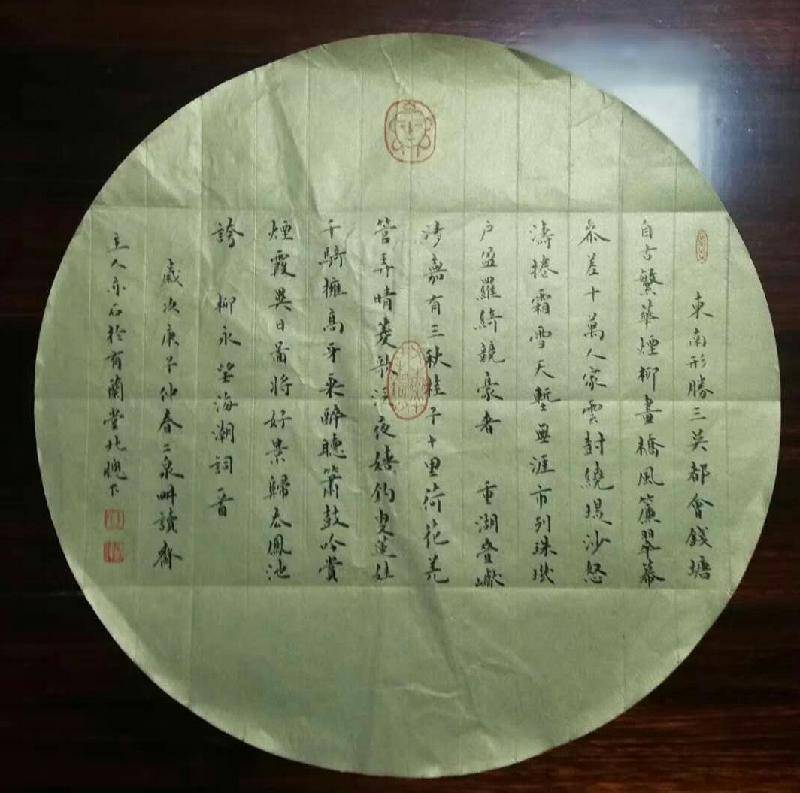 東南形勝三吳都會錢塘
自古繁華煙柳畫橋風簾翠幕
參差十萬人家雲封繞堤沙怒
濤捲霜雪天塹無涯市列珠璣
户盈羅綺競豪奢 重湖疊巘
清嘉有三秋桂子十里荷花羌
管弄晴菱歌泛夜嬉釣叟蓮娃
千騎擁高牙乘醉聽簫鼓吟賞
煙霞異日圖將好景歸去鳳池
誇 柳永望海潮詞一首
歲次庚子仲春二泉畊讀齋
主人亦石於有蘭堂北牕下